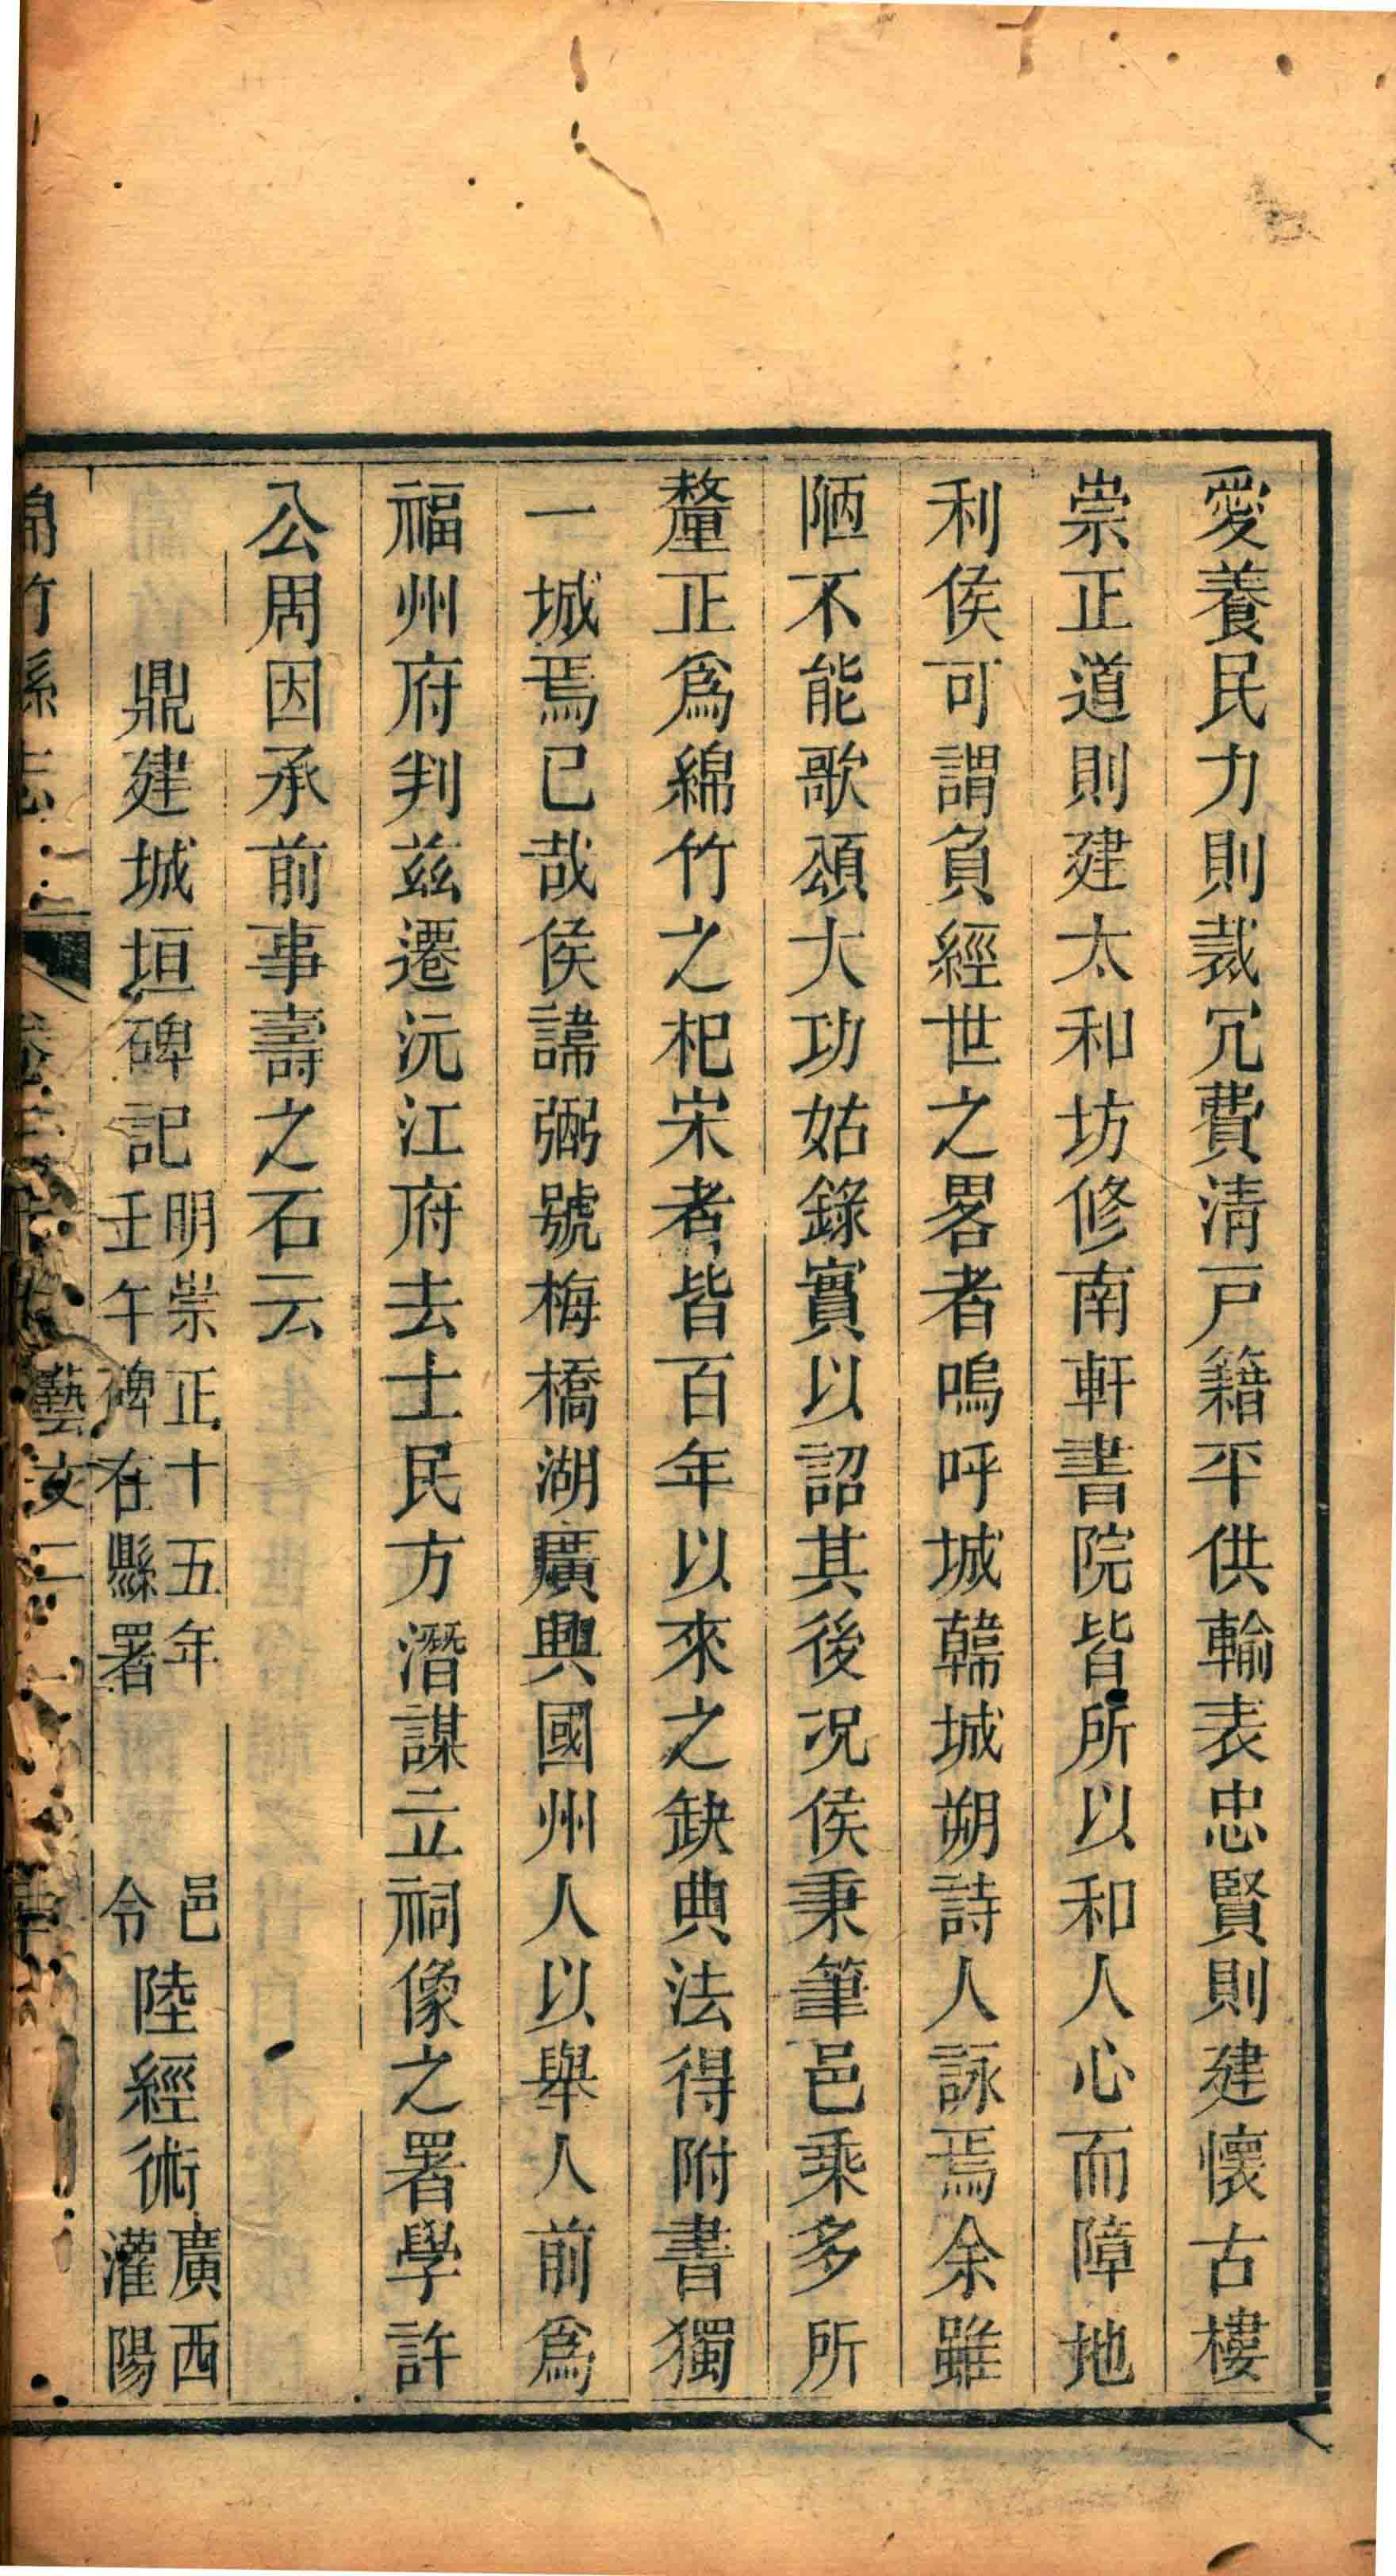 愛養民力則裁冗費淸戸籍平供輸表忠賢則建懷古樓
崇正道則建太和坊修南軒書院皆所以和人心而障地
利侯可謂負經世之畧者嗚呼城韓城朔詩人詠焉余雖
陋不能歌頌大功姑錄實以詔其後况侯秉筆邑乘多所
釐正爲綿竹之杞宋者皆百年以來之缺典法得附書獨
一城焉已哉侯諱弼號梅橋湖廣興國州人以舉人前爲
福州府判兹遷沅江府去士民方潛謀立祠像之署學許
公周因承前事壽之石云
鼎建城垣碑記明崇正十五年壬午碑在縣署 邑令陸經術廣西灌陽
綿竹縣志 藝文二